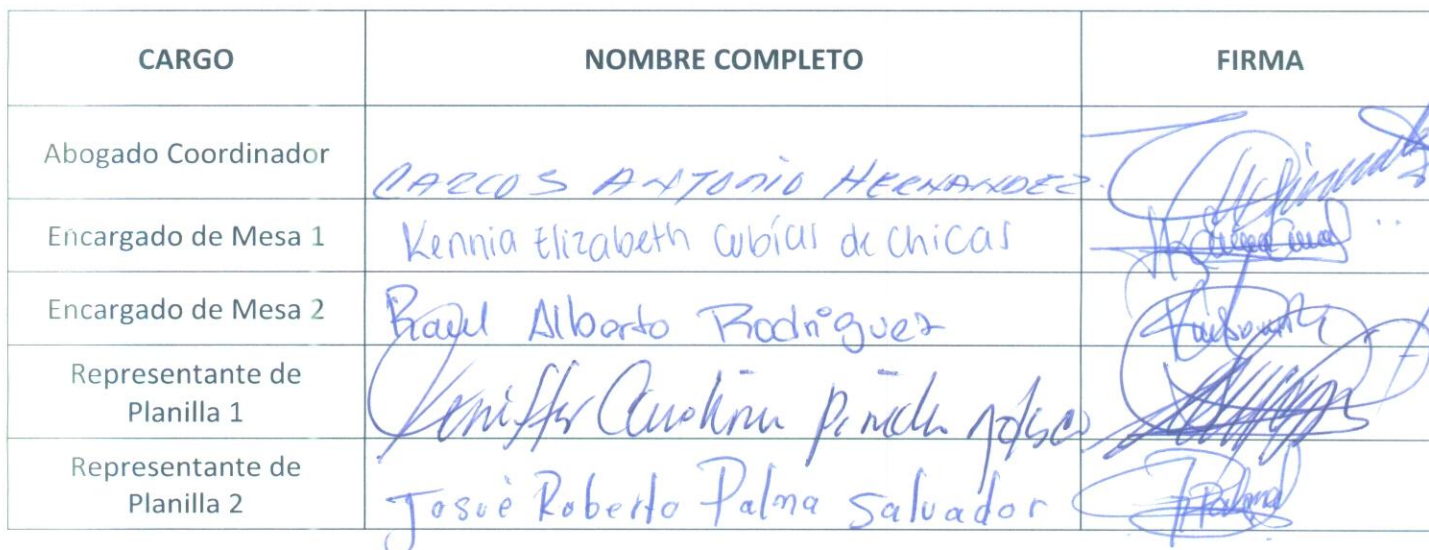 CARGO NOMBRE COMPLETO FIRMA
Abogado Coordinador CARLOS ANTONIO HERNANDEZ.
Encargado de Mesa 1 Kennia Elizabeth Cubías de Chicas
Encargado de Mesa 2 Raul Alberto Rodriguez
Representante de
Planilla 1 Keniffer Carolina Pineda
Representante de
Planilla 2 Josué Roberto Palma Salvador JPalma